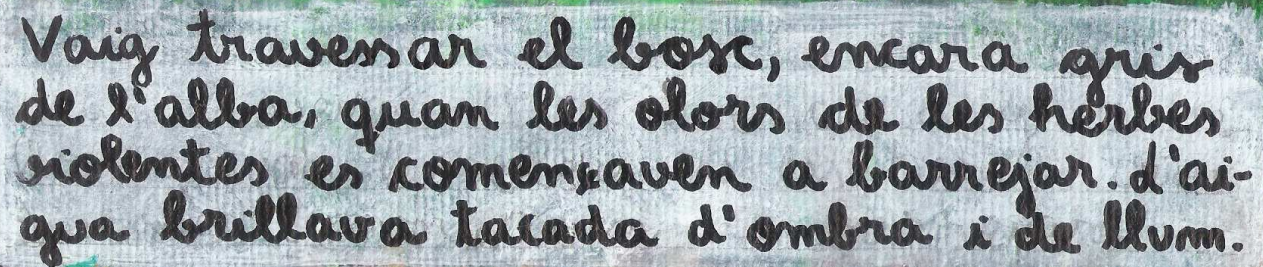 Vaig travessar el bosc, encara gris
de l'alba, quan les olors de les herbes
violentes es començaven a barrejar. d'ai-
gua brillava tacada d'ombra i de llum.